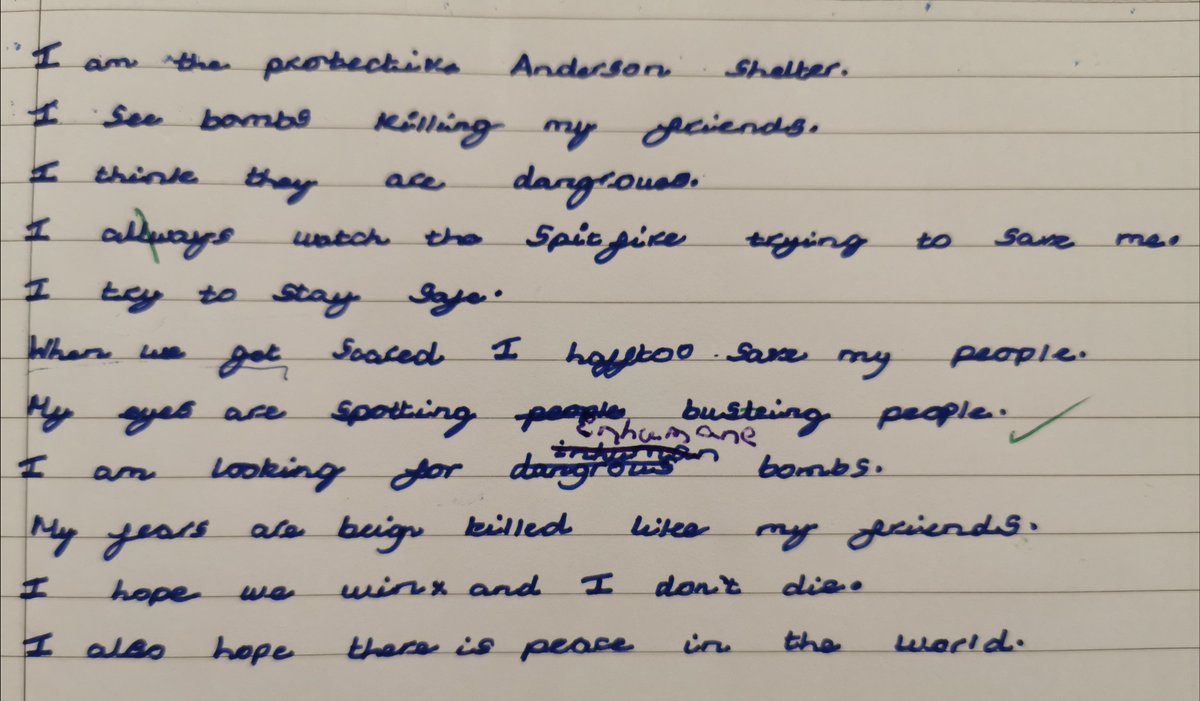 I am the protectike Anderson Shelter.
I see bombs killing my friends.
I think they are dangrouse.
I allways watch the Spitfire trying to save me.
I try to stay safe.
When we get scared I hafftoo save my people.
My eyes are spotting people busteing people.
inhumane
inhuman
I am looking for dangrous bombs.
My fears are beign killed like my friends.
I hope we win and I don't die.
I also hope there is peace in the world.